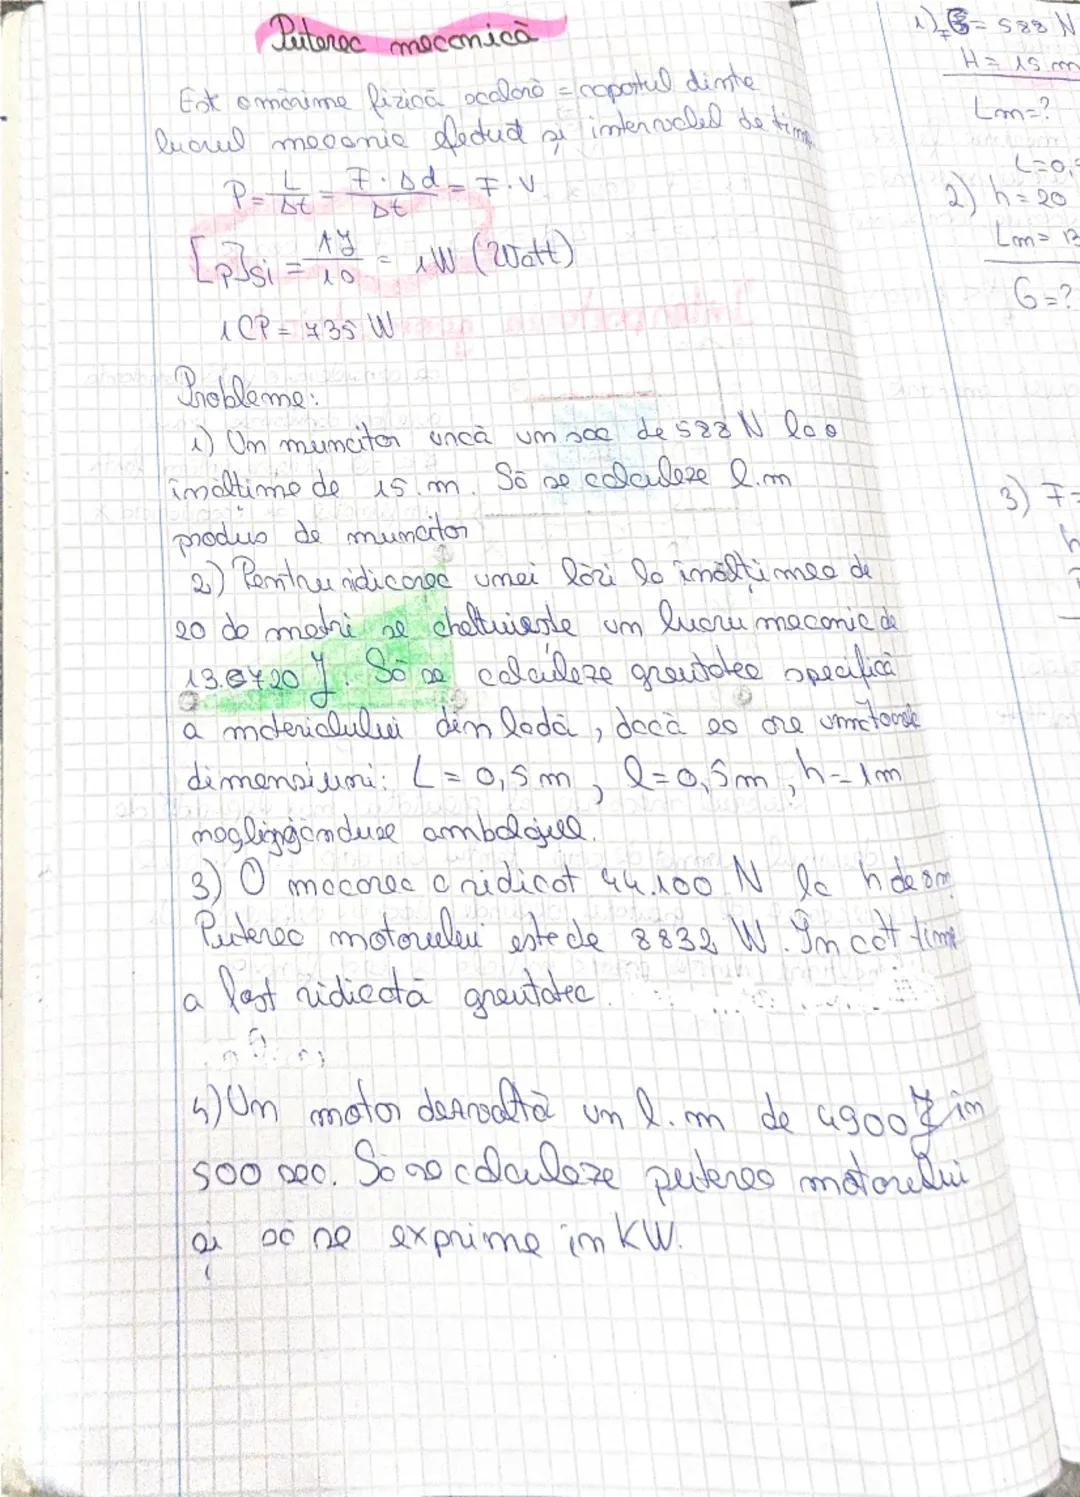 Puterea mecanică
Este o mărime fizică scalară = raportul dintre
lucrul mecanic efectuat și intervalul de timp
P = L/Δt = F·Δd/Δt = F·V
[P]SI = 1J/1s = 1W (Watt)
1CP = 735 W
Probleme:
1) Un muncitor urcă un sac de 588 N la o
înălțime de 15 m. Să se calculeze l.m
produs de muncitor
2) Pentru ridicarea unei lăzi la înălțimea de
20 de metri se cheltuiește un lucru mecanic de
J. Să se calculeze greutatea specifică
a materialului din ladă, dacă ea are următoarele
dimensiuni: L = 0,5m, l=0,5m, h=1m
neglijânduse ambalajul.
3) O macara a ridicat 44.100 N la h de 8m
Puterea motorului este de 8832 W. În cât timp
a fost ridicată greutatea.
4) Un motor dezvoltă un l.m de 4900 J în
500 sec. Să se calculeze puterea motorului
și să se exprime în KW.
1) G= 588 N
H= 15 m
Lm=?
L=0,5
2) h=20
Lm= 13
G=?
3) F=
h